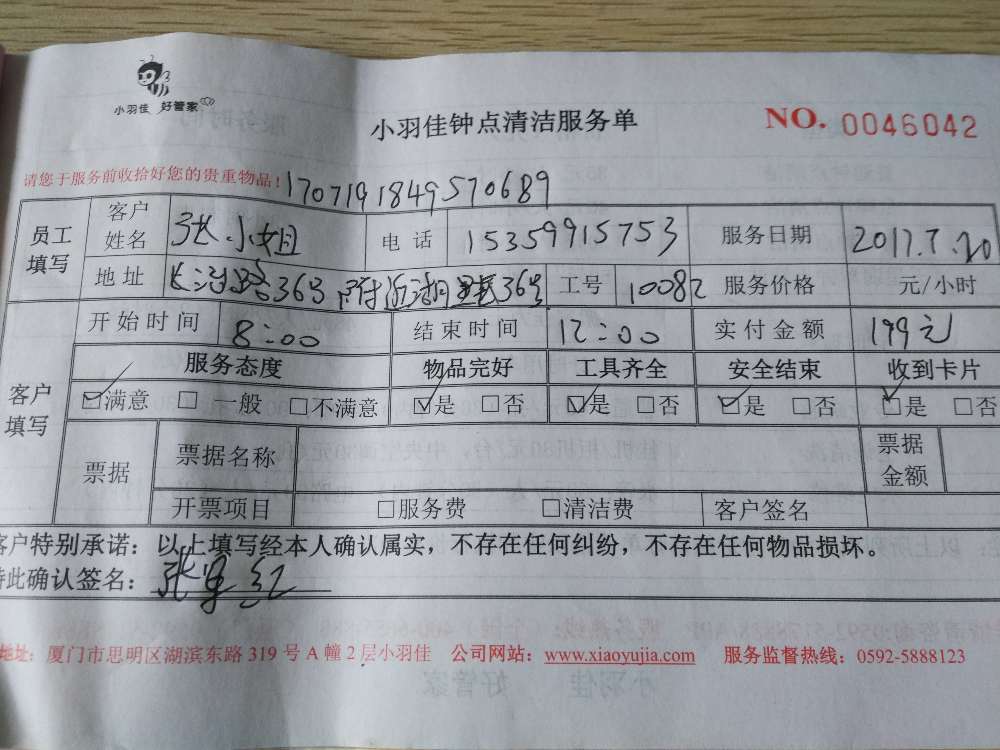 小羽佳 好管家
小羽佳钟点清洁服务单
NO. 0046042
请您于服务前收拾好您的贵重物品!
1707191849570689
员工填写 客户姓名 张小姐 电话 15359915753 服务日期 2017.7.20
地址 长浩路36号附近湖里苑36号 工号 10082 服务价格 元/小时
客户填写 开始时间 8:00 结束时间 12:00 实付金额 199元
服务态度 物品完好 工具齐全 安全结束 收到卡片
☑满意 □一般 □不满意 ☑是 □否 ☑是 □否 ☑是 □否 ☑是 □否
票据 票据名称 票据金额
开票项目 □服务费 □清洁费 客户签名
客户特别承诺：以上填写经本人确认属实，不存在任何纠纷，不存在任何物品损坏。
特此确认签名：张 红
地址：厦门市思明区湖滨东路 319 号 A 幢 2 层小羽佳 公司网站：www.xiaoyujia.com 服务监督热线：0592-5888123